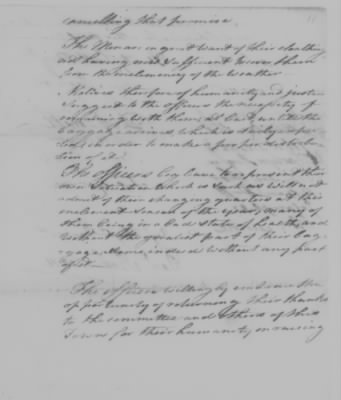 cancelling that promise
The Men are in great want of their cloathing
not having even Sufficient to cover them
from the inclemency of the Weather
Motives therefore of humanity and justice
Suggest to the officers the necessity of
remaining with them, at least, until the
baggage arrives which is daily expec
ted, in order to make a proper distribu
tion of it
The Officers beg leave to represent their
own Situation which is Such as will not
admit of their changing quarters at this
inclement Season of the year, many of
them being in a bad State of health, and
without the greatest part of their bag
gage, Some indeed without any part
of it
The Officers willingly embrace this
opportunity of returning their thanks
to the committee and others of this
Town for their humanity in raising